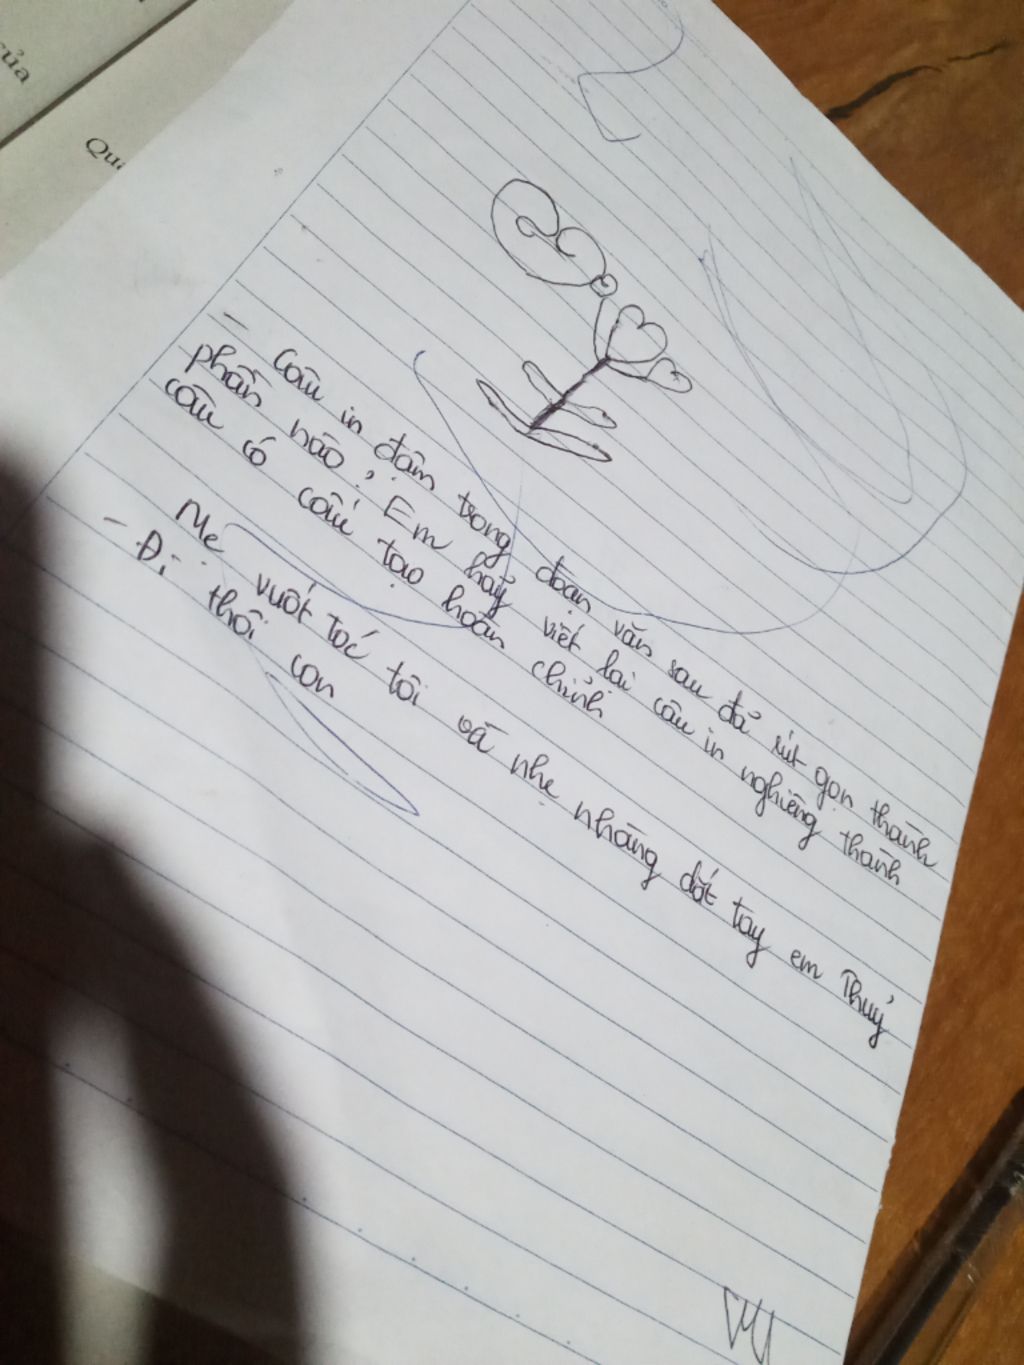 của
Qua
- Câu in đậm trong đoạn văn sau đã rút gọn thành
phần nào, Em hãy viết lại câu in nghiêng thành
câu có cấu tạo hoàn chỉnh
Mẹ vuốt tóc tôi và nhẹ nhàng dắt tay em Thuỷ
- Đi thôi con